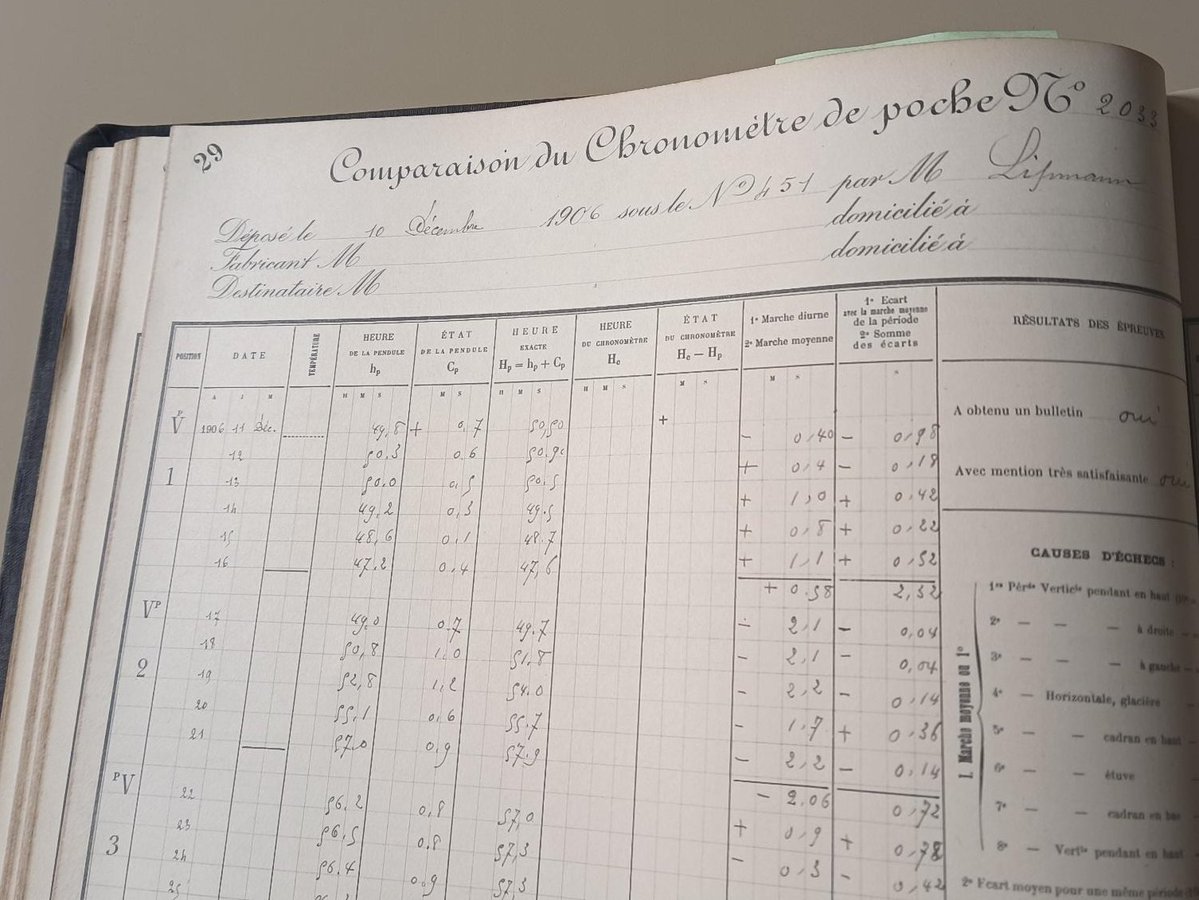 29
Comparaison du Chronomètre de poche Nº 2033
Déposé le 10 Décembre 1906 sous le Nº 451 par M Lipmann
Fabricant M domicilié à
Destinataire M domicilié à
POSITION DATE TEMPÉRATURE HEURE DE LA PENDULE hp ÉTAT DE LA PENDULE Cp HEURE EXACTE Hp = hp + Cp HEURE DU CHRONOMÈTRE Hc ÉTAT DU CHRONOMÈTRE Hc — Hp 1º Marche diurne 2º Marche moyenne 1º Ecart avec la marche moyenne de la période 2º Somme des écarts RÉSULTATS DES ÉPREUVES
A J M H M S M S H M S H M S M S M S S
VP 1906 11 Déc. 49,8 + 0,7 50,50 +
A obtenu un bulletin oui
- 0,40 - 0,98
12 50.3 0,6 50,90
+ 0,4 - 0,18
1 13 50.0 0,5 50,5
Avec mention très satisfaisante oui
+ 1,0 + 0,42
14 49.2 0,3 49,5
+ 0,8 + 0,22
15 48,6 0,1 48.7
+ 1,1 + 0,52
16 47.2 0,4 47,6
+ 0.58 2,32
CAUSES D'ÉCHECS :
VP 17 49.0 0.7 49.7
- 2,1 - 0,04
18 50,8 1,0 51,8
- 2,1 - 0,04
2 19 52,8 1,2 54.0
- 2,2 - 0,14
20 55,1 0,6 55.7
- 1.7 + 0,36
21 57.0 0,9 57.9
- 2,2 - 0,14
- 2,06 0,72
PV 22 56,2 0,8 57,0
+ 0,9 + 0,78
23 56,5 0.8 57,3
- 0,3 - 0,42
3 24 56.4 0,9 57,3
25
I. Marche moyenne ou 1º
1re Pérde Verticle pendant en haut
2e — — — à droite
3e — — — à gauche
4e — Horizontale, glacière
5e — — cadran en haut
6e — — étuve
7e — — cadran en bas
8e — Vertle pendant en haut
2º Ecart moyen pour une même période